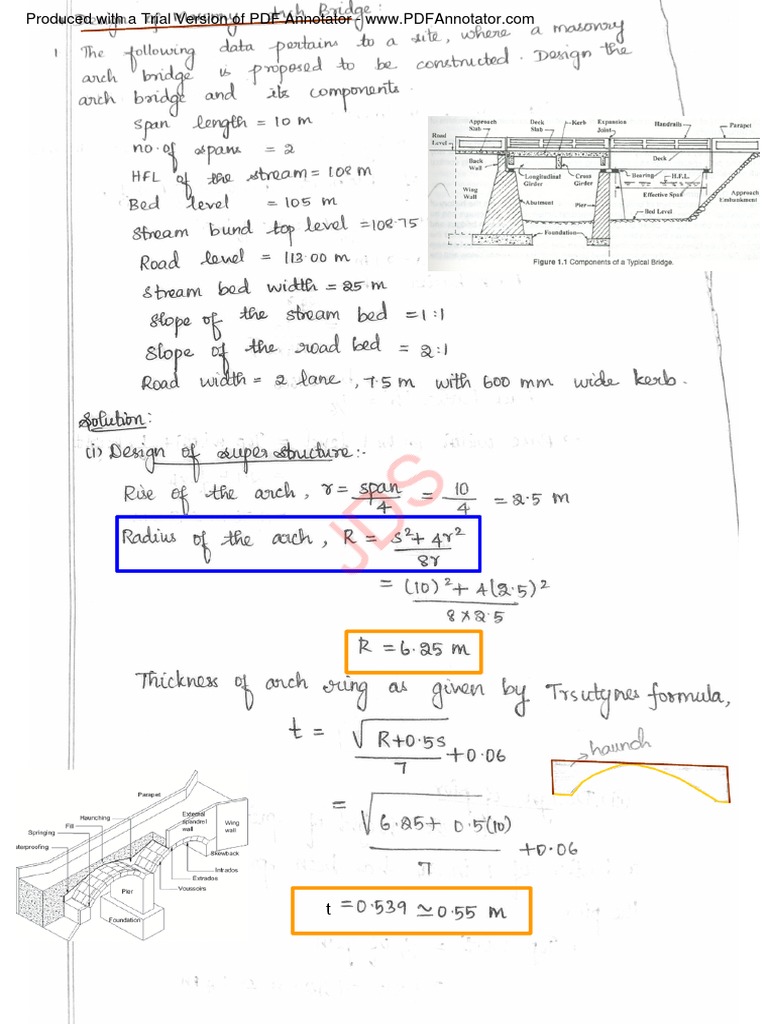 Produced with a Trial Version of PDF Annotator - www.PDFAnnotator.com
Arch Bridge:
1 The following data pertains to a site, where a masonry
arch bridge is proposed to be constructed. Design the
arch bridge and its components.
Span length = 10 m
no. of spans = 2
HFL of the stream = 108 m
Bed level = 105 m
Stream bund top level = 108.75
Road level = 113.00 m
Stream bed width = 25 m
Slope of the stream bed = 1:1
Slope of the road bed = 2:1
Road width = 2 lane, 7.5 m with 600 mm wide kerb.
Approach Slab
Deck Slab
Kerb
Expansion Joint
Handrails
Parapet
Road Level
Back Wall
Deck
Longitudinal Girder
Cross Girder
Bearing
H.F.L.
Wing Wall
Effective Span
Approach Embankment
Abutment
Pier
Bed Level
Foundation
Figure 1.1 Components of a Typical Bridge.
Solution:
(i) Design of super structure:-
Rise of the arch, r = span/4 = 10/4 = 2.5 m
Radius of the arch, R = s²+4r²/8r
= (10)²+4(2.5)²/8×2.5
R = 6.25 m
JDS
Thickness of arch ring as given by Trsutynes formula,
t = √R+0.5s/7 +0.06
haunch
= √6.25+0.5(10)/7 +0.06
t =0.539 ≃ 0.55 m
Parapet
Haunching
Fill
Springing
terproofing
External spandrel wall
Wing wall
Skewback
Intrados
Extrados
Voussoirs
Pier
Foundation